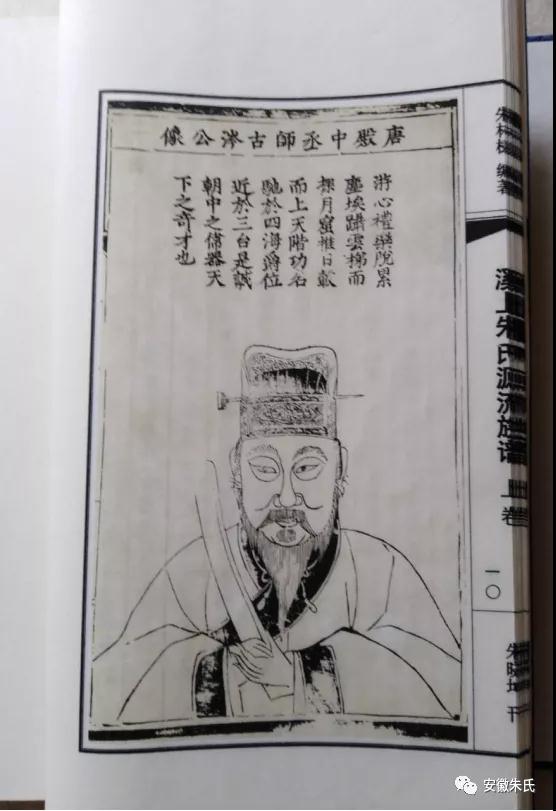 唐殿中丞師古涔公像
游心禮樂脫累
塵埃躡雲梯而
探月窟推日轂
而上天階功名
馳於四海爵位
近於三台是誠
朝中之偉器天
下之奇才也
编著
溪上朱氏源流族谱 上卷
一〇
刊
安徽朱氏